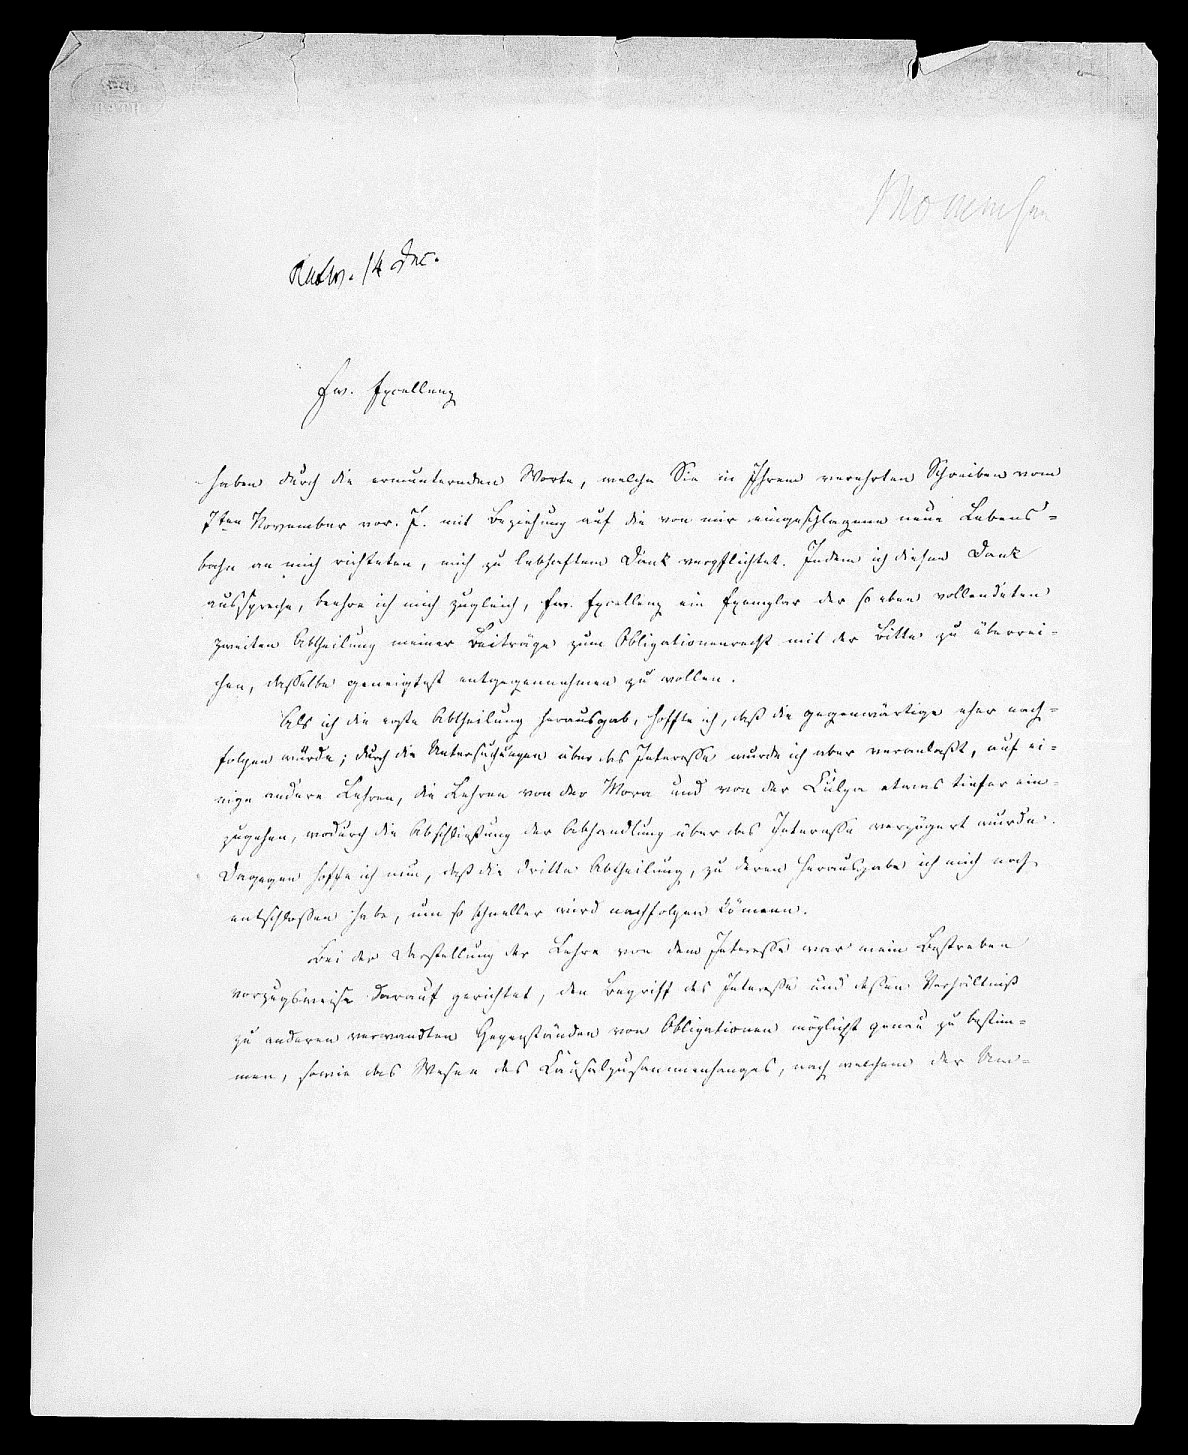 Mommsen
Antw. 14 Dec.
Ew. Excellenz
haben durch die ermunternden Worte, welche Sie in Ihrem verehrten Schreiben vom
7ten November vor. J. mit Beziehung auf die von mir eingeschlagene neue Lebens-
bahn an mich richteten, mich zu lebhaftem Dank verpflichtet. Indem ich diesen Dank
ausspreche, beehre ich mich zugleich, Ew. Excellenz ein Exemplar der so eben vollendeten
zweiten Abtheilung meiner Beiträge zum Obligationenrecht mit der Bitte zu überrei-
chen, dasselbe geneigtest entgegennehmen zu wollen.
Als ich die erste Abtheilung herausgab, hoffte ich, daß die gegenwärtige eher nach-
folgen würde; durch die Untersuchungen über das Interesse wurde ich aber veranlaßt, auf ei-
nige andere Lehren, die Lehren von der Mora und von der Culpa etwas tiefer ein-
zugehen, wodurch die Abschließung der Abhandlung über das Interesse verzögert wurde.
Dagegen hoffe ich nun, daß die dritte Abtheilung, zu deren Herausgabe ich mich noch
entschlossen habe, um so schneller wird nachfolgen können.
Bei der Darstellung der Lehre von dem Interesse war mein Bestreben
vorzugsweise darauf gerichtet, den Begriff des Interesse und dessen Verhältniß
zu anderen verwandten Gegenständen von Obligationen möglichst genau zu bestim-
men, sowie das Wesen des Causalzusammenhanges, nach welchem der Um-